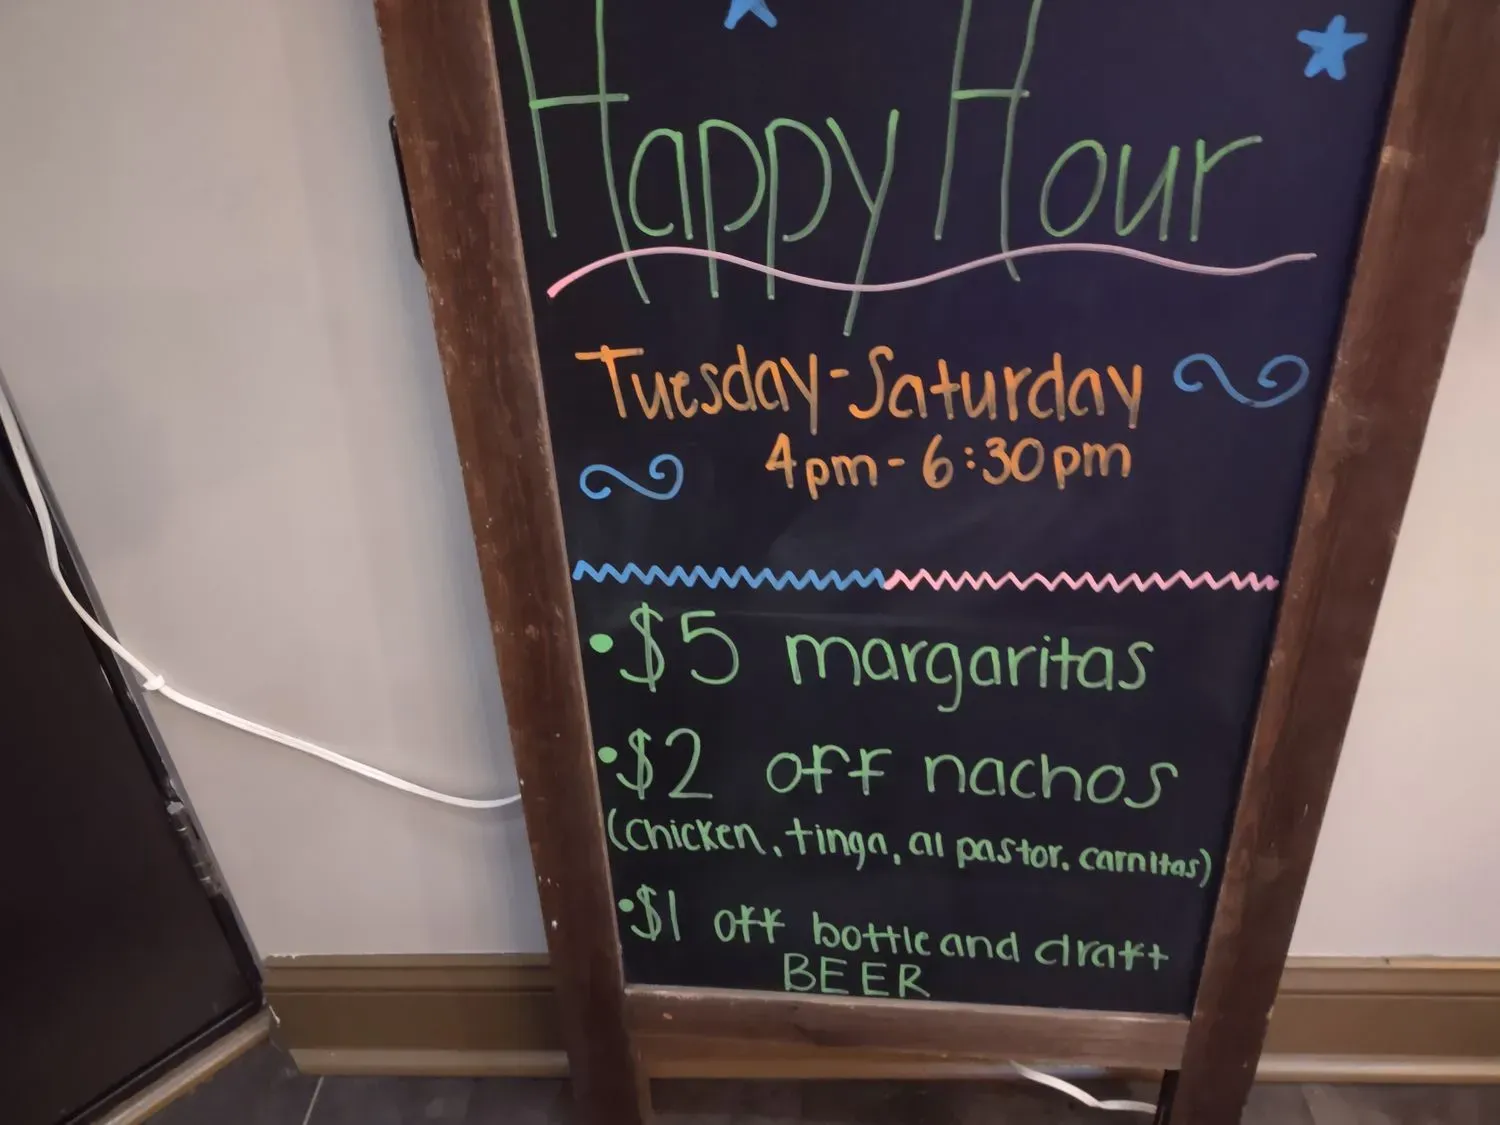 Happy Hour
Tuesday-Saturday
4pm-6:30pm
•$5 margaritas
•$2 off nachos
(chicken, tinga, al pastor, carnitas)
•$1 off bottle and draft
BEER